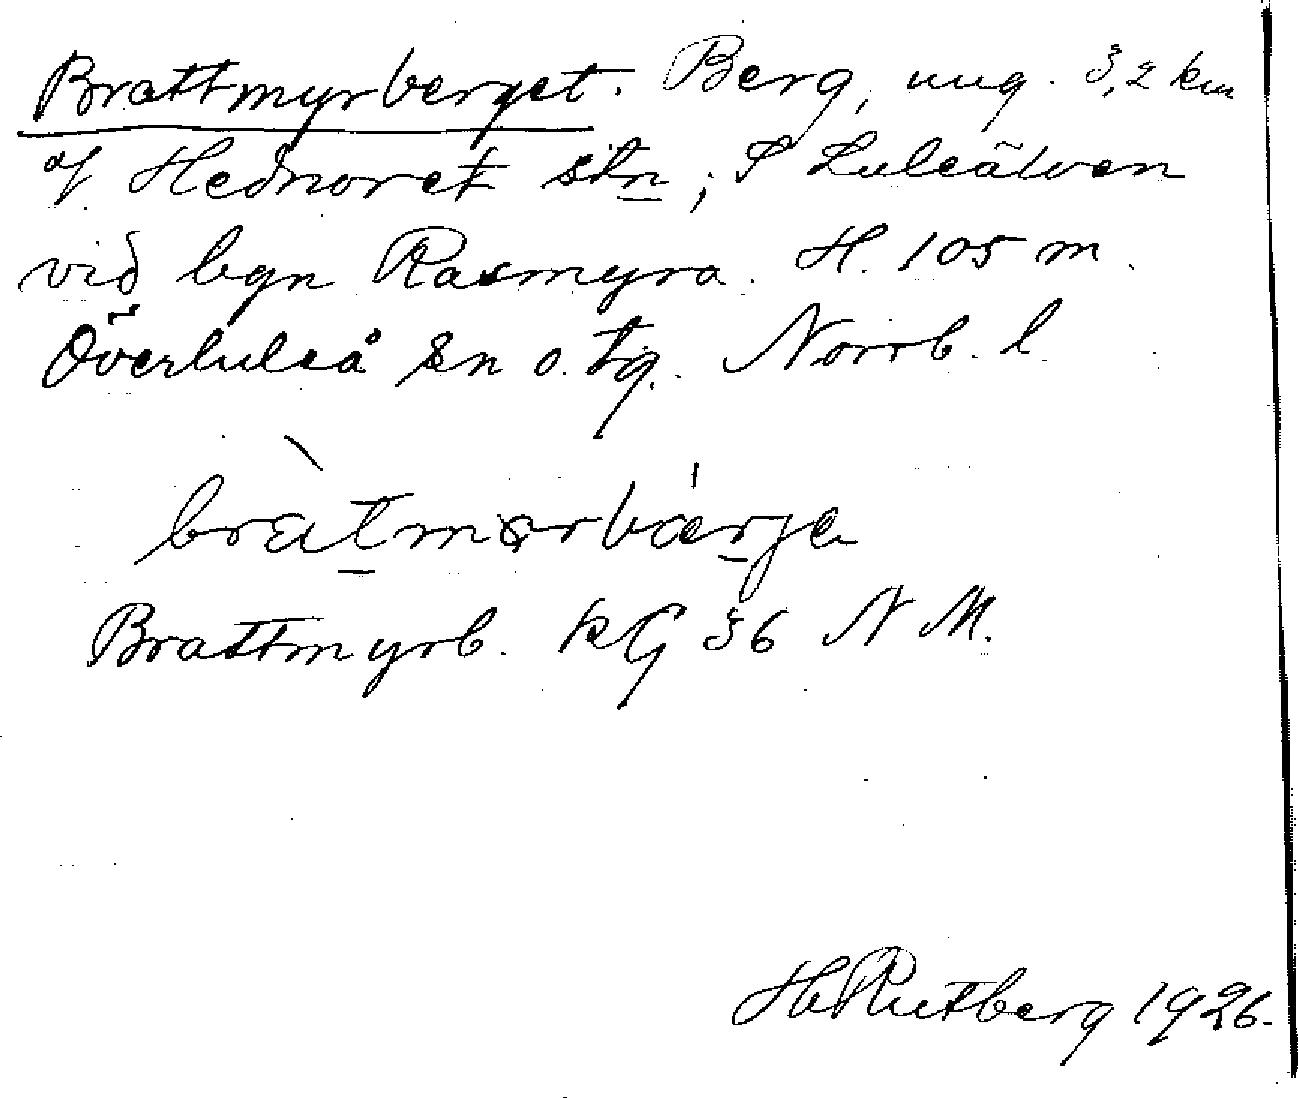 Brattmyrberget. Berg, ung. 3,2 km
af Hednoret stn; S Luleälven
vid bgn Rasmyra. H. 105 m.
Överluleå sn o. tg. Norrb. l.
bràtmørbǽrjɐ
Brattmyrb. KG 36 N M.
H Rutberg 1926.